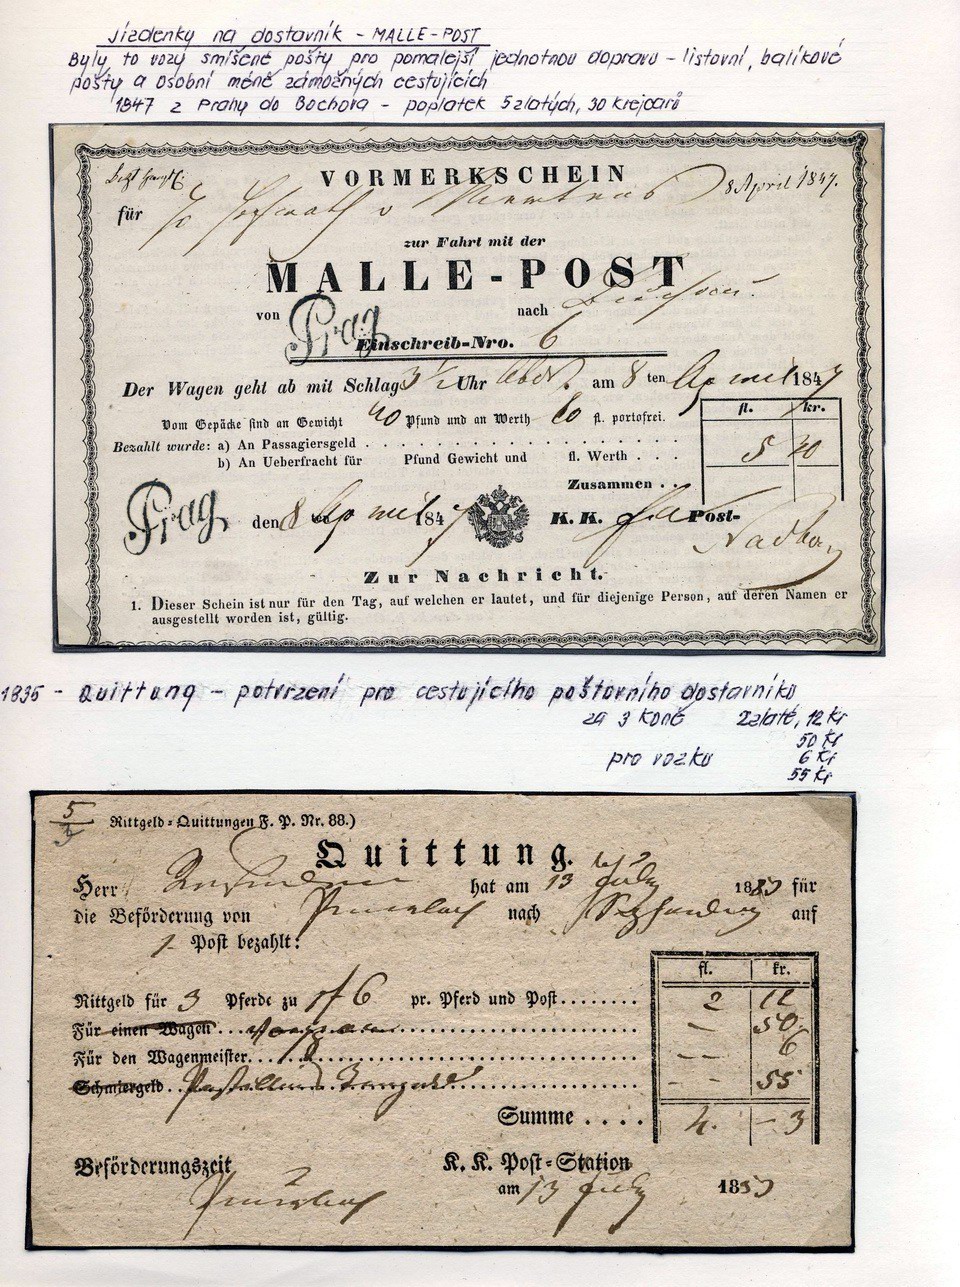 Jízdenky na dostavník - MALLE-POST
Byly to vozy smíšené pošty pro pomalejší jednotnou dopravu - listovní, balíkové
pošty a osobní méně zámožných cestujících
1847 z Prahy do Bochova - poplatek 5 zlatých, 30 krejcarů
VORMERKSCHEIN
8 April 1847.
für
zur Fahrt mit der
MALLE-POST
von Prag nach
Einschreib-Nro. 6
Der Wagen geht ab mit Schlag 3 1/2 Uhr Abds. am 8 ten April 1847
Vom Gepäcke sind an Gewicht 40 Pfund und an Werth 60 fl. portofrei.
fl. kr.
Bezahlt wurde: a) An Passagiersgeld
b) An Ueberfracht für Pfund Gewicht und fl. Werth . . .
5
Zusammen . .
Prag, den 8 April 1847 K. K. Post-
Zur Nachricht.
1. Dieser Schein ist nur für den Tag, auf welchen er lautet, und für diejenige Person, auf deren Namen er
ausgestellt worden ist, gültig.
1835 - Quittung - potvrzení pro cestujícího poštovního dostavníku
za 3 koně 2zlaté, 12 kr
50 kr
pro vozku 6 kr
55 kr
Rittgeld-Quittungen F. P. Nr. 88.)
Quittung.
Herr hat am 13 July 18 für
die Beförderung von nach auf
1 Post bezahlt:
fl. kr.
Rittgeld für 3 Pferde zu 1f 6 pr. Pferd und Post........ 2 12
Für einen Wagen - 50
Für den Wagenmeister - - 6
Schmiergeld - - 55
Summe . . . . 4. - 3
Beförderungszeit K. K. Post-Station
am 13 July 18